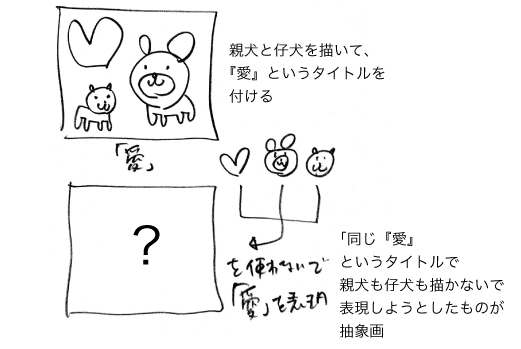 親犬と仔犬を描いて、
『愛』というタイトルを
付ける
「愛」
?
を使わないで
「愛」を表現
「同じ『愛』
というタイトルで
親犬も仔犬も描かないで
表現しようとしたものが
抽象画